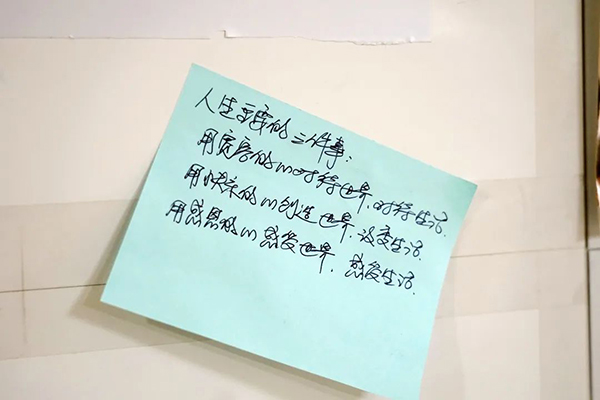 人生重要的三件事：
用宽容的心对待世界，对待生活。
用快乐的心创造世界，改变生活。
用感恩的心感受世界，感受生活。